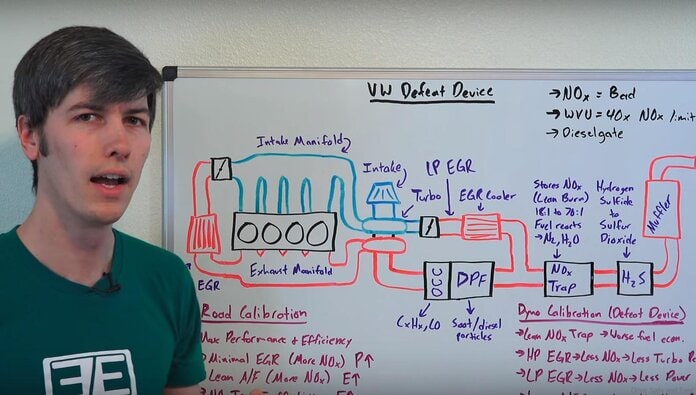 VW Defeat Device
→ NOx = Bad
→ WVU = 40x NOx limit
→ Dieselgate
Intake Manifold
Intake
LP EGR
Turbo
EGR Cooler
Stores NOx
(Lean Burn)
18:1 to 70:1
Fuel reacts
→ N2, H2O
Hydrogen
Sulfide
to
Sulfur
Dioxide
Muffler
Exhaust Manifold
EGR
DPF
NOx
Trap
H2S
CxHx, CO
Soot/diesel
particles
Road Calibration
Max Performance & Efficiency
→ Minimal EGR (More NOx) P↑
→ Lean A/F (More NOx) E↑
Dyno Calibration (Defeat Device)
→ Lean NOx Trap → Worse fuel econ.
→ HP EGR → Less NOx → Less Turbo
→ LP EGR → Less NOx → Less Power
EE